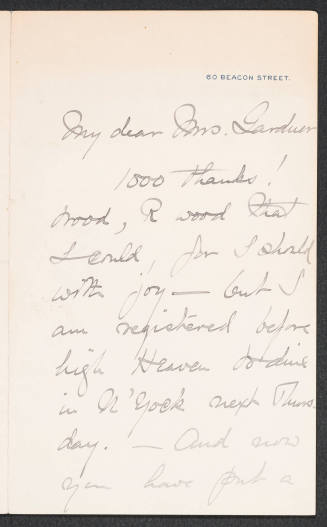 60 BEACON STREET.
My dear Mrs. Gardner
1000 thanks!
Wood, R wood that
I could, for I should
with joy — but I
am registered before
high Heaven to dine
in N'Yock next Thurs-
day. — And now
you have put a